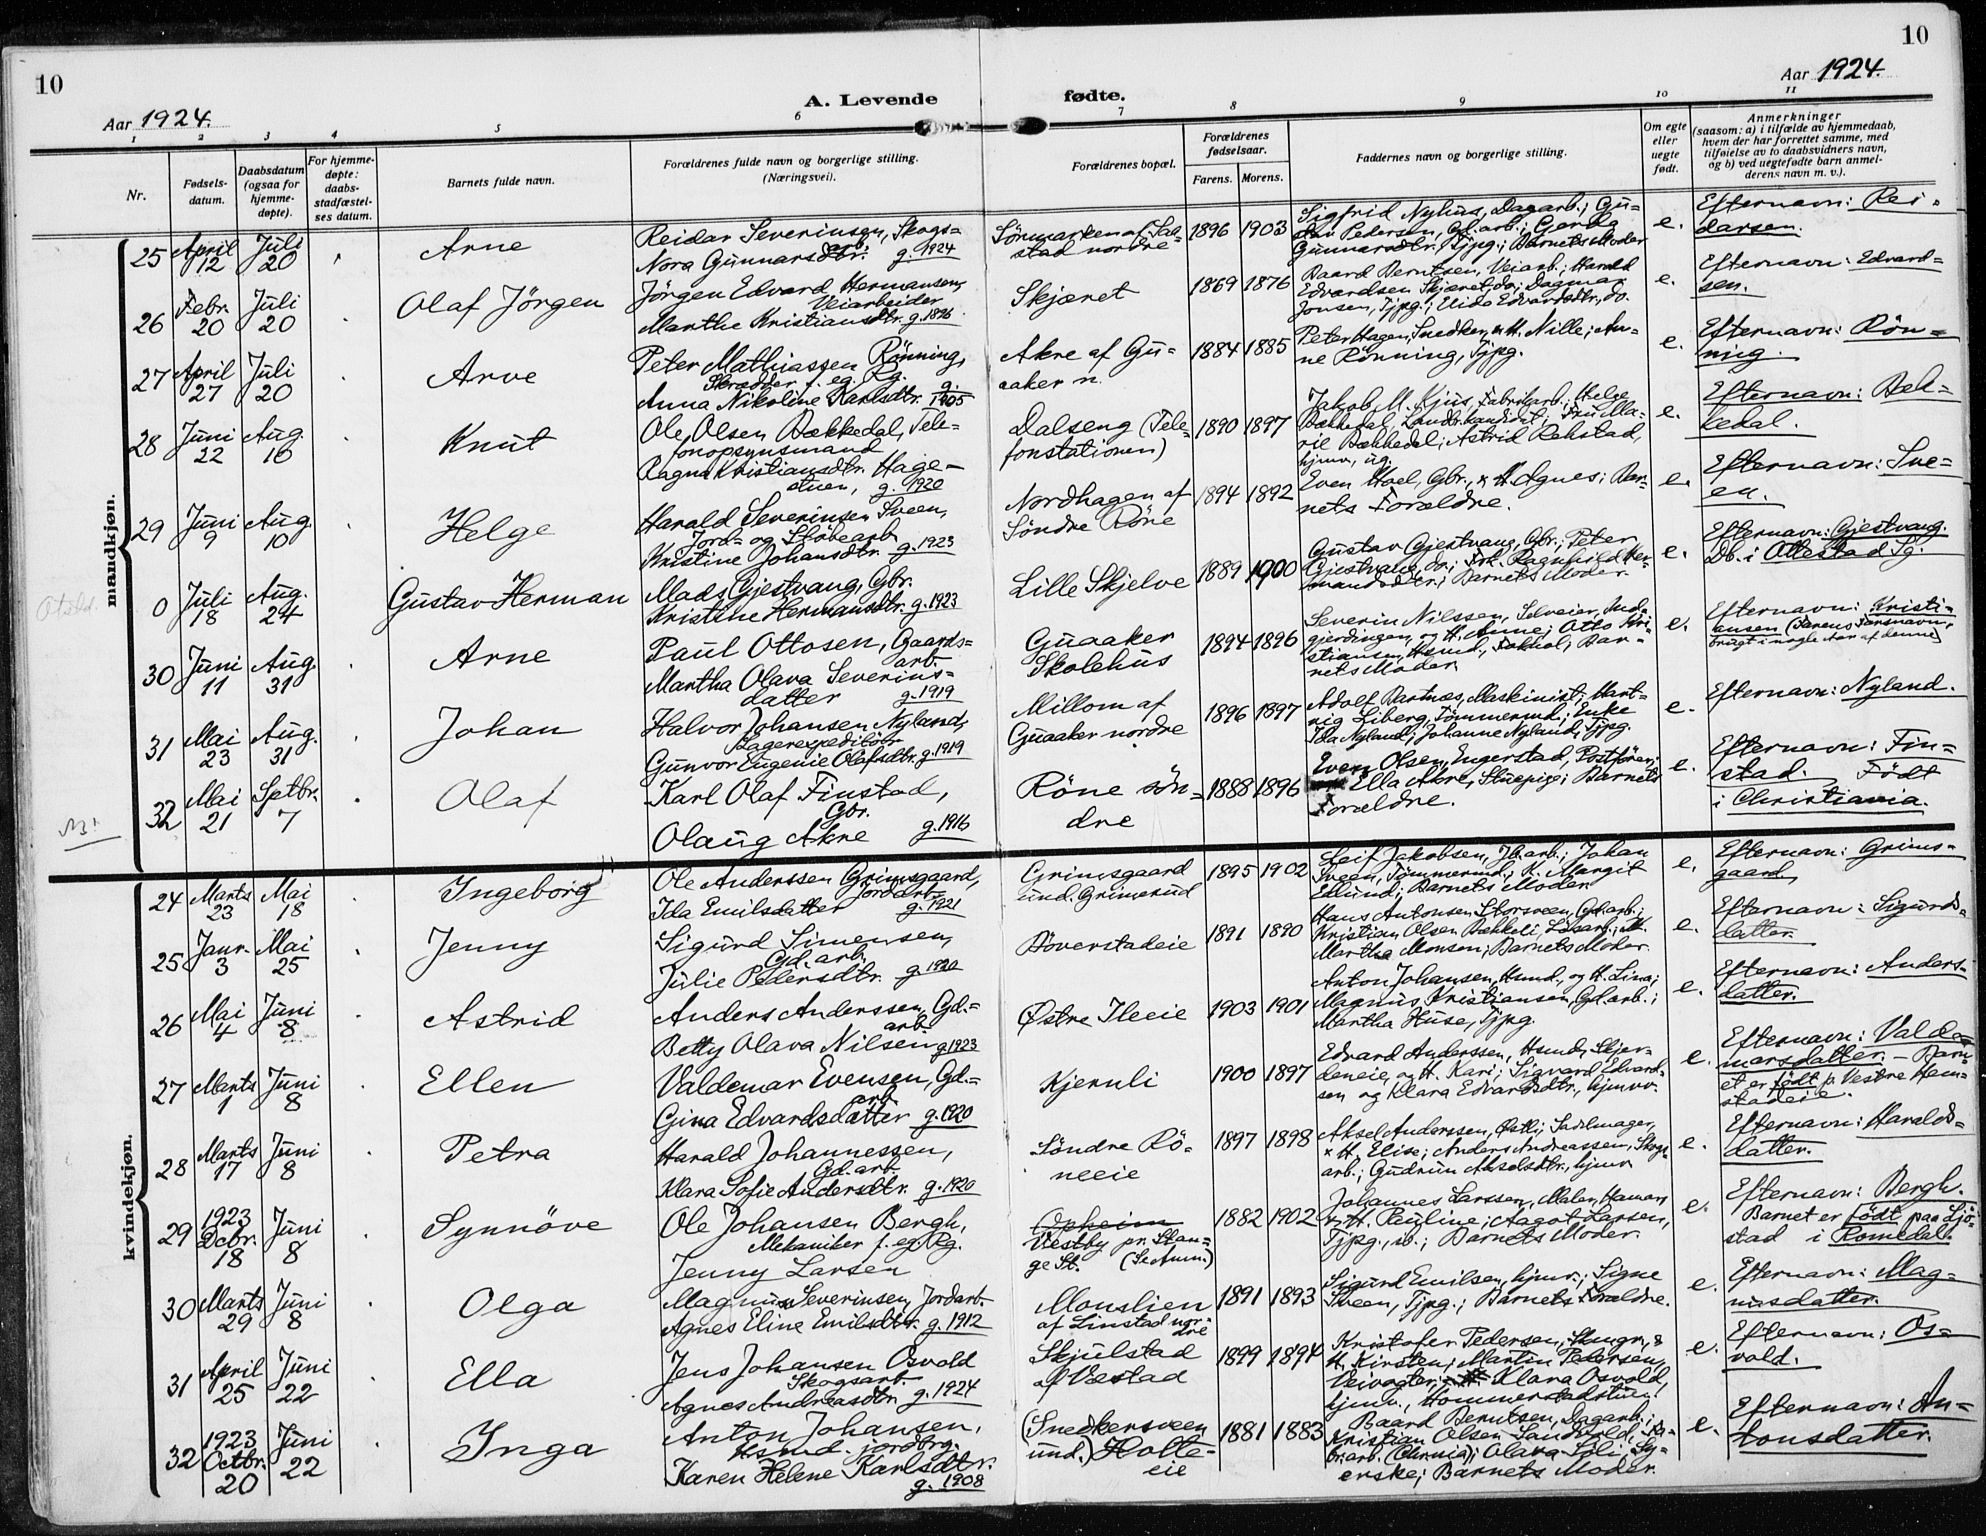 10
10
Aar 1924.
A. Levende fødte.
Aar 1924.
1 2 3 4 5 6 7 8 9 10 11
Nr.
Fødsels-
datum.
Daabsdatum
(ogsaa for
hjemme-
døpte).
For hjemme-
døpte:
daabs-
stadfæstel-
ses datum.
Barnets fulde navn.
Forældrenes fulde navn og borgerlige stilling.
(Næringsvei).
Forældrenes bopæl.
Forældrenes
fødselsaar.
Farens. Morens.
Faddernes navn og borgerlige stilling.
Om egte
eller
uegte
født.
Anmerkninger
(saasom: a) i tilfælde av hjemmedaab,
hvem der har forrettet samme, med
tilføielse av to daabsvidners navn,
og b) ved uegtefødte barn anmel-
derens navn m. v.).
mandkjøn.
25
April
12
Juli
20
Arne
Reidar Severinsen, Skogs-
arb.
Nora Gunnarsdtr. g. 1924
Sönmarken af Lad-
stad nordre
1896 1903
Sigfrid Nyhus, Dagarb.; Gu-
Pedersen, Gd.arb.; Gerda
Gunnarsdtr., Tjpg.; Barnets Moder
e.
Efternavn: Rei-
darsen.
26
Febr.
20
Juli
20
Olaf Jörgen
Jörgen Edvard Hermansen,
Veiarbeider
Marthe Kristiansdtr. g. 1896
Skjæret
1869 1876
Baard Berntsen, Veiarb.; Harald
Edvardsen Skjæret, do.; Dagmar
Jonsen, Tjpg.; Elida Edvardsdtr., do.
e.
Efternavn: Edvard-
sen.
27
April
27
Juli
20
Arve
Peter Mathiassen Rönning,
Skrædder f. eg. Rg.
Anna Nikoline Karlsdtr. g. 1905
Akre af Gu-
aaker n.
1884 1885
Peter Hagen, Snedker, & H. Nille; An-
ne Rönning, Tjpg.
e.
Efternavn: Rön-
ning.
28
Juni
22
Aug.
10
Knut
Ole Olsen Bækkedal, Tele-
fonopsynsmand
Ragna Kristiansdtr. Hage-
stuen, g. 1920
Dalseng (Tele-
fonstationen)
1890 1897
Jakob M. Kjus, Fabrikarb.; Helge
Bækkedal, Landbr.kandidat; Fru Ma-
rie Bækkedal; Astrid Rokstad,
hjmv., ug.
e.
Efternavn: Bæk-
kedal.
29
Juni
9
Aug.
10
Helge
Harald Severinsen Sveen,
Jord- og Stöbearb.
Kristine Johansdtr. g. 1923
Nordhagen af
Söndre Röne
1894 1892
Even Hoel, Gbr., & H. Agnes; Bar-
nets Forældre.
e.
Efternavn: Sve-
en.
Otstd.
0
Juli
18
Aug.
24
Gustav Herman
Mads Gjestvang, Gbr.
Kristine Hermansdtr. g. 1923
Lille Skjelve
1889 1900
Gustav Gjestvang, Gbr.; Peter
Gjestvang, do.; Frk. Ragnhild Her-
mansdtr.; Barnets Moder.
e.
Efternavn: Gjestvang.
Db. i Ottestad Sg.
30
Juni
11
Aug.
31
Arne
Paul Ottosen, Gaards-
arb.
Martha Olava Severins-
datter g. 1919
Guaaker
Skolehus
1894 1896
Severin Nilssen, Selveier, Ind-
gjerdingen, og H. Anne; Otto Kri-
stiansen, Hsmd., Bar-
nets Moder.
e.
Efternavn: Kristi-
ansen (Farens Farsnavn,
brugt i nogle Aar af denne)
31
Mai
23
Aug.
31
Johan
Halvor Johansen Nyland,
Lagerexpeditör
Gunvor Eugenie Olafsdtr. g. 1919
Millom af
Guaaker nordre
1896 1897
Adolf Bartnæs, Maskinist; Hart-
vig Liberg, Tömmermd.; Enke
Ida Nyland; Johanne Nyland, Tjpg.
e.
Efternavn: Nyland.
32
Mai
21
Septbr.
7
Olaf
Karl Olaf Finstad,
Gbr.
Olaug Akre g. 1916
Röne sön-
dre
1888 1896
Even Olsen, Engerstad, Postförer;
Ella Akre, Stuepige; Barnets
Forældre.
e.
Efternavn: Fin-
stad. Födt
i Christiania.
kvindekjøn.
24
Marts
23
Mai
18
Ingeborg
Ole Anderssen Grimsgaard,
Jordarb.
Ida Emilsdatter g. 1921
Grimsgaard
und. Grimerud
1895 1902
Leif Jakobsen, Jb.arb.; Johan
Sveen, Tömmermd.; P. Margit
Edlund; Barnets Moder
e.
Efternavn: Grims-
gaard
25
Janr.
3
Mai
25
Jenny
Sigurd Simensen,
Gd.arb.
Julie Pedersdtr. g. 1920
Böverstadeie
1891 1890
Hans Antonsen Storsveen, Gd.arb.;
Kristian Olsen Bækkeli, Lösarb., & H.
Martha Monsen; Barnets Moder.
e.
Efternavn: Sigurds-
datter.
26
Mai
4
Juni
8
Astrid
Anders Anderssen, Gd.-
arb.
Betty Olava Nilsen g. 1923
Østre Ileeie
1903 1901
Anton Johansen, Hsmd., og H. Lina;
Magnus Kristiansen, Gd.arb.;
Martha Huse, Tjpg.
e.
Efternavn: Anders-
datter.
27
Marts
1
Juni
8
Ellen
Valdemar Evensen, Gd.-
arb.
Gina Edvardsdatter g. 1920
Kjernli
1900 1897
Edvard Anderssen, Hsmd., Skjer-
deneie, og H. Kari; Sigvard Edvard-
sen og Klara Edvardsdtr., hjmvv.
e.
Efternavn: Valde-
marsdatter. – Barn-
et er födt p. Vestre Hem-
stadeie.
28
Marts
17
Juni
8
Petra
Harald Johannessen,
Gd.arb.
Klara Sofie Andersdtr. g. 1920
Söndre Rö-
neeie
1897 1898
Aksel Anderssen, Østli, Sadlmager,
& H. Elise; Anders Andreassen, Skogs-
arb.; Gudrun Akselsdtr., hjmv.
e.
Efternavn: Haralds-
datter.
29
1923
Decbr.
18
Juni
8
Synnöve
Ole Johansen Bergh,
Mekaniker f. eg. Rg.
Jenny Larsen
Opheim
Vestby pr. Stan-
ge St. (Se Anm.)
1882 1902
Johannes Larssen, Maler, Hamar,
& H. Pauline; Aagot Larsen,
Tjpg., ib.; Barnets Moder.
e.
Efternavn: Bergh.
Barnet er födt paa Sjö-
stad i Romedal.
30
Marts
29
Juni
8
Olga
Magnus Severinsen, Jordarb.
Agnes Eline Emilsdtr. g. 1912
Monslien
af Linstad nor-
dre
1891 1893
Sigurd Emilsen, hjmv.; Signe
Sveen, Tjpg.; Barnets Forældre.
e.
Efternavn: Mag-
nusdatter.
31
April
25
Juni
22
Ella
Jens Johansen Osvold
Skogsarb.
Agnes Andreasdtr. g. 1924
Skjulstad
af Væstad
1899 1894
Kristofer Pedersen, Skogr., &
H. Kirsten; Martin Pedersen,
Veivogter; Klara Osvold,
hjmv., Hommerstadstun.
e.
Efternavn: Os-
vold.
32
1923
Octbr.
20
Juni
22
Inga
Anton Johansen,
Hsmd. jordbrg.
Karen Helene Karlsdtr.
g. 1908
(Snedkersveen
und.) Holte-
eie
1881 1883
Baard Berntsen, Dagarb.;
Kristian Olsen Sandvold, Fa-
br.arb. (Chrnia); Olava Löli, Sy-
erske; Barnets Moder.
e.
Efternavn: An-
tonsdatter.